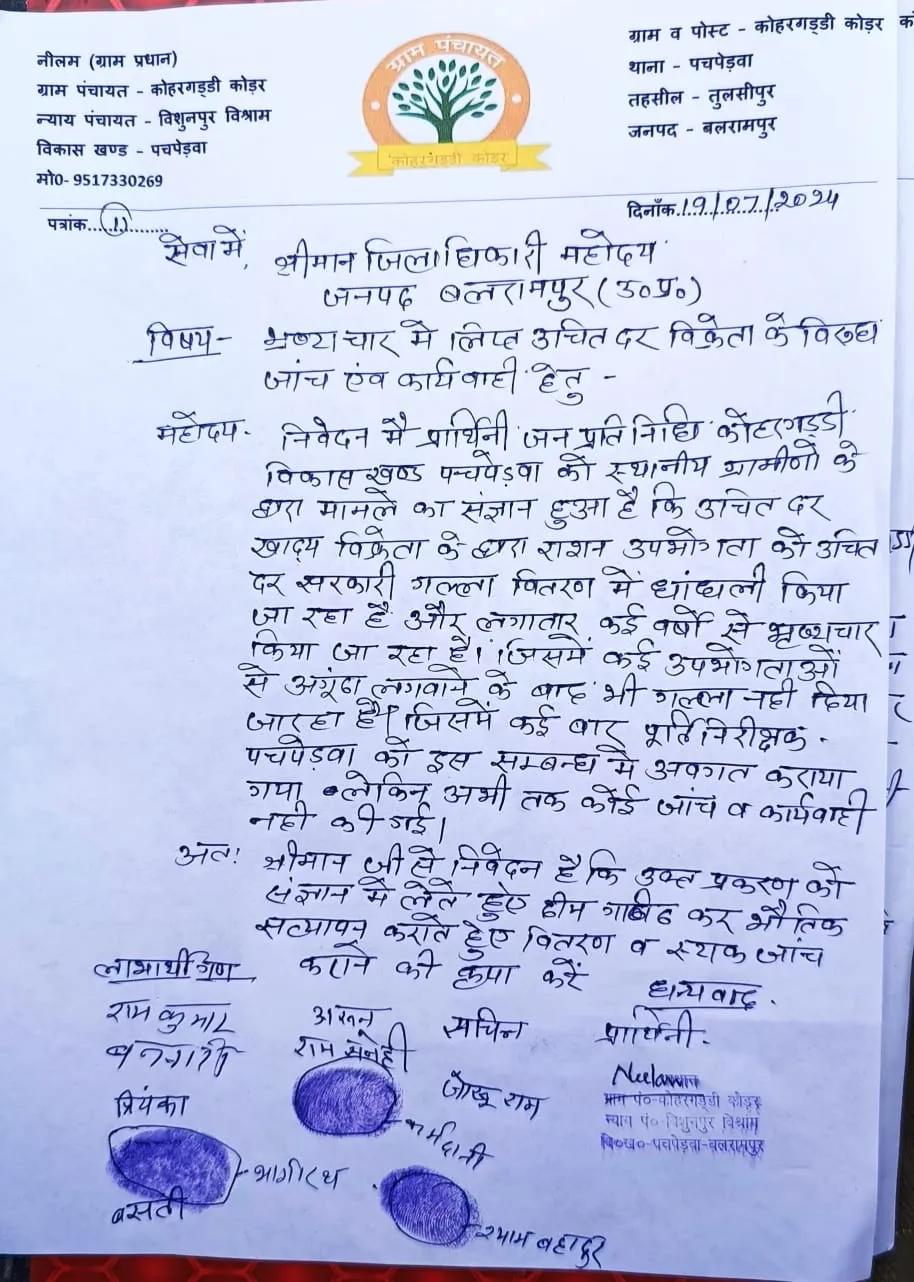 नीलम (ग्राम प्रधान)
ग्राम पंचायत - कोहरगड्डी कोड़र
न्याय पंचायत - विशुनपुर विश्राम
विकास खण्ड - पचपेड़वा
मो0- 9517330269
ग्राम पंचायत
कोहरगड्डी कोडर
ग्राम व पोस्ट - कोहरगड्डी कोड़र
थाना - पचपेड़वा
तहसील - तुलसीपुर
जनपद - बलरामपुर
पत्रांक...11........
दिनाँक.19/07/2024
सेवा में,
श्रीमान जिलाधिकारी महोदय
जनपद बलरामपुर (उ०प्र०)
विषय- भ्रष्याचार मे लिप्त उचित दर विक्रेता के विरुध
जांच एंव कार्यवाही हेतु -
महोदय- निवेदन मै प्रार्थिनी जन प्रतिनिधि कोहरगड्डी
विकास खण्ड पचपेड़वा को स्थानीय ग्रामीणों के
द्वारा मामले का संज्ञान हुआ है कि उचित दर
खाद्य विक्रेता के द्वारा राशन उपभोगता को उचित
दर सरकारी गल्ला वितरण में धांधली किया
जा रहा है और लगातार कई वर्षो से भ्रष्यचार
किया जा रहा है। जिसमें कई उपभोगताओं
से अगूंठा लगवाने के बाद भी गल्ला नही दिया
जा रहा है। जिसमें कई बार पूर्ति निरीक्षक
पचपेड़वा को इस सम्बन्ध मे अवगत कराया
गया लेकिन अभी तक कोई जांच व कार्यवाही
नही की गई।
अतः श्रीमान जी से निवेदन है कि उक्त प्रकरण को
संज्ञान मे लेते हुए टीम गठित कर भौतिक
सत्यापन कराते हुए वितरण व स्टाक जांच
कराने की कृपा करें
धन्यवाद.
लाभार्थीगण
राम कुमार
अरून
सचिन
प्रार्थिनी.
राम सनेही
प्रियंका
जोखू राम
Neelam
ग्राम पं०-कोहरगड्डी कोड़र
न्याय पं०-विशुनपुर विश्राम
वि०ख०-पचपेड़वा-बलरामपुर
कर्मदानी
भागीरथ
बसंती
श्याम बहादुर